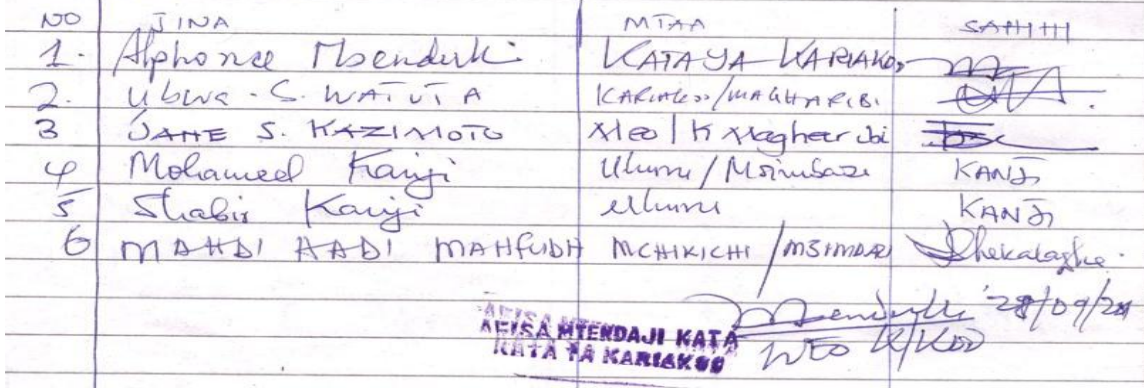 NO JINA MTAA SAHIHI
1. Alphonce Mbenduki KATA YA KARIAKOO
2. Ubwa .S. WATUTA KARIAKOO/MAGHARIBI
3 JANE S. KAZIMOTO Meo/K Magharibi
4 Mohamed Kanji Uhuru/Msimbazi KANJI
5 Shabir Kanji Uhuru KANJI
6 MAHDI HADI MAHFUDH MCHIKICHI/MSIMBAZI
28/09/
AFISA MTENDAJI KATA
KATA YA KARIAKOO
WEO K/KOO